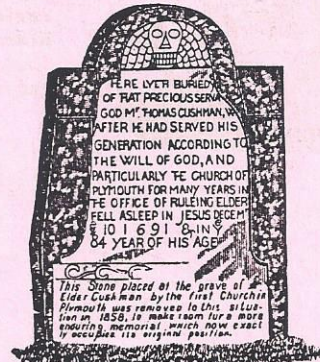 HERE LYETH BURIED
OF THAT PRECIOUS SERVA
GOD Mr. THOMAS CUSHMAN, W
AFTER HE HAD SERVED HIS
GENERATION ACCORDING TO
THE WILL OF GOD, AND
PARTICULARLY THE CHURCH OF
PLYMOUTH FOR MANY YEARS IN
THE OFFICE OF RULEING ELDER
FELL ASLEEP IN JESUS DECEM
10 1691 & IN Y
84 YEAR OF HIS AGE
This Stone placed at the grave of
Elder Cushman by the first Church in
Plymouth was removed to this situa-
tion in 1858, to make room for a more
enduring memorial, which now exact
ly occupies its original position.